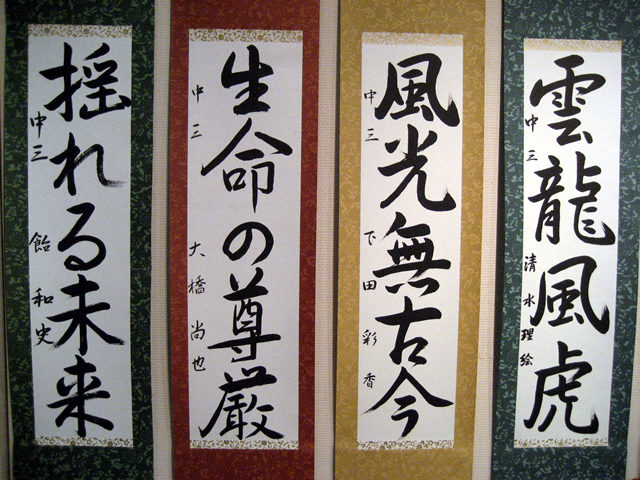 雲龍風虎
中三 清水理絵
風光無古今
中三 下田彩香
生命の尊厳
中三 大橋尚也
揺れる未来
中三 飴和史